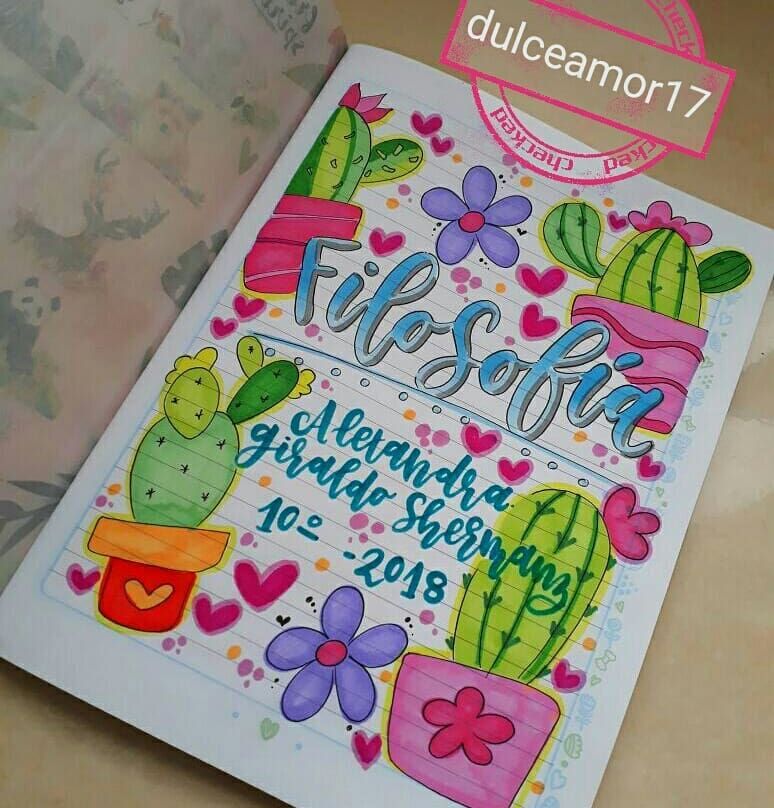 dulceamor17
checked
checked
Filosofía
Aletandra
giraldo Shermanz
10º -2018